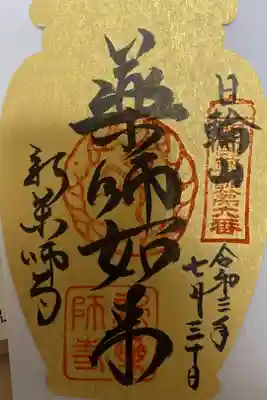 日輪山
令和三年
七月三十日
薬師如来
新薬師寺